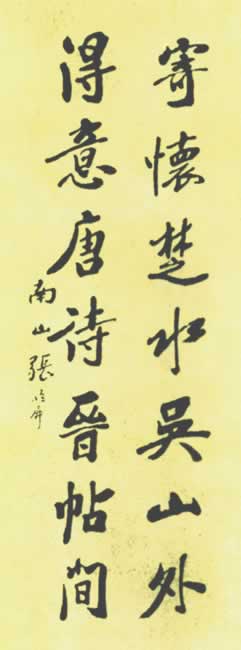 寄懷楚水吳山外
得意唐詩晉帖間
南山張